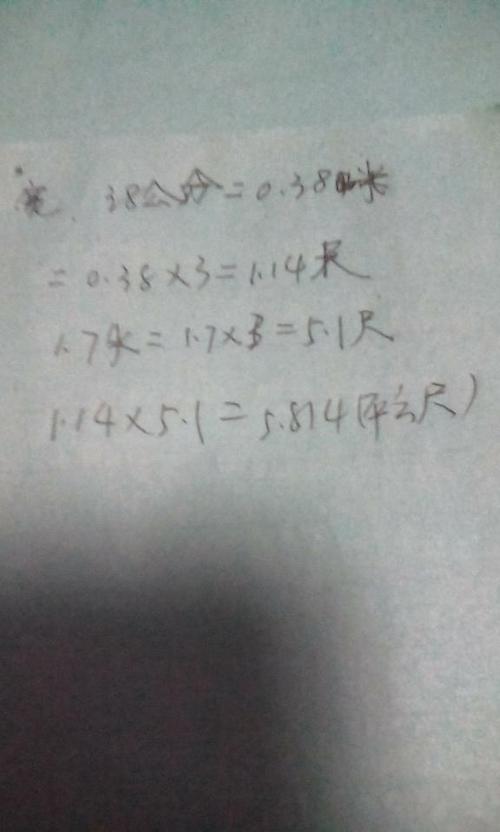 宽. 38公分=0.38米
=0.38×3=1.14尺
1.7米=1.7×3=5.1尺
1.14×5.1=5.814(平公尺)